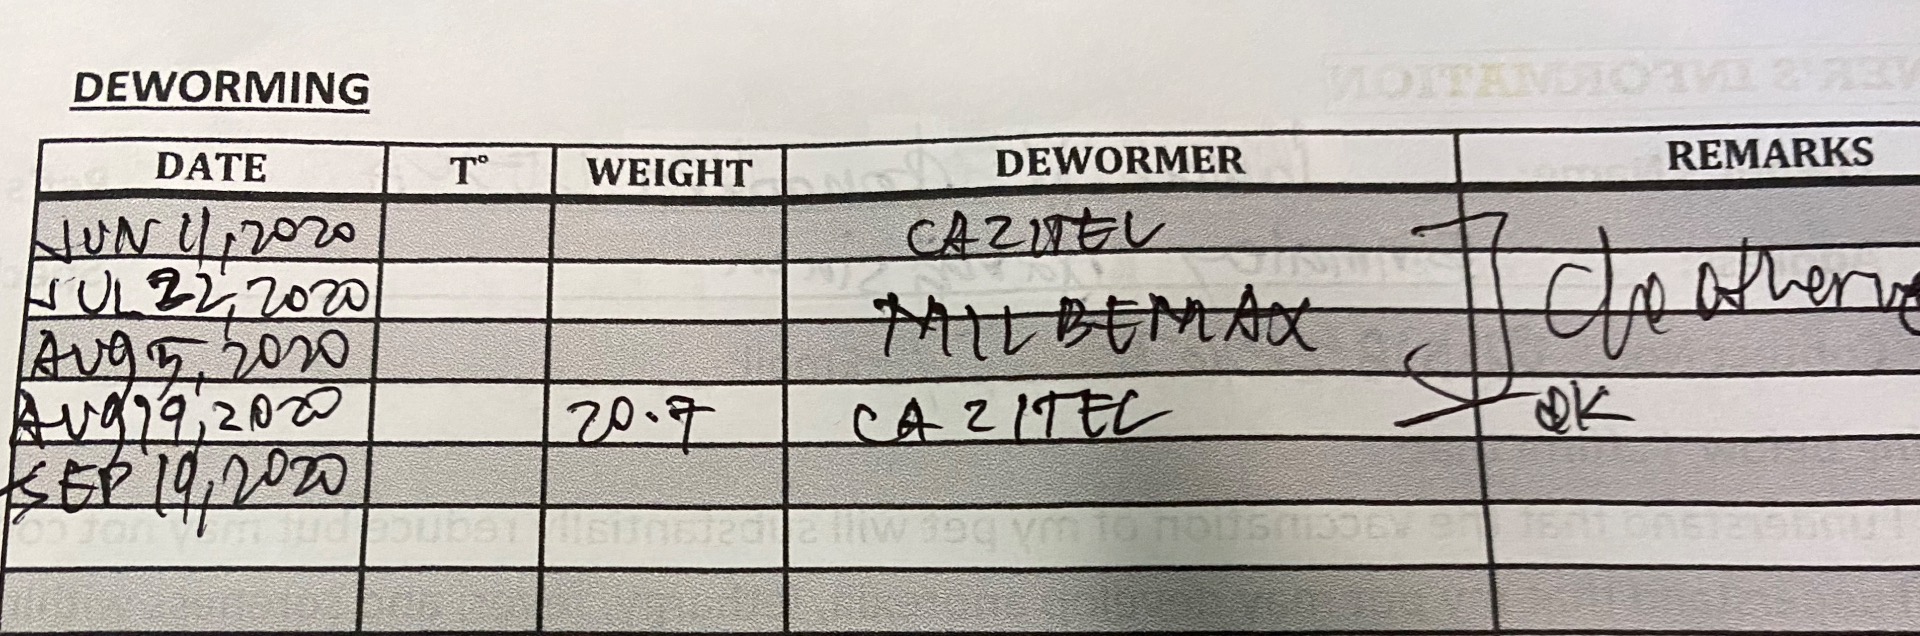 DEWORMING
DATE T° WEIGHT DEWORMER REMARKS
JUN 11, 2020 CAZITEL
JUL 22, 2020
MILBEMAX
c/o other
AUG 5, 2020
AUG 19, 2020 20.7 CAZITEL OK
SEP 19, 2020